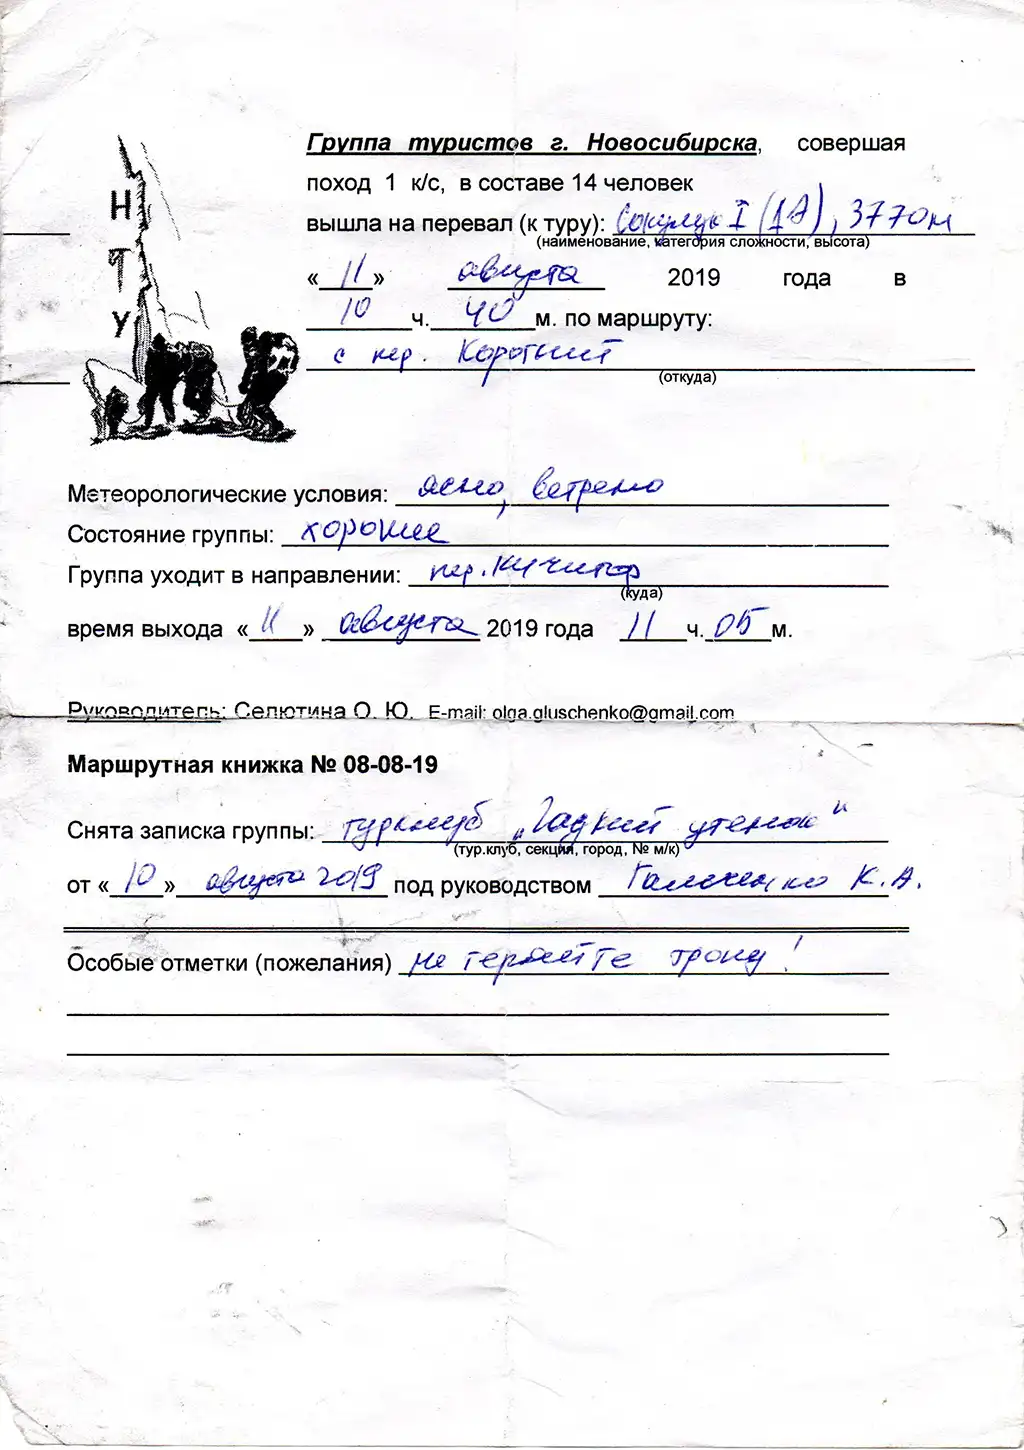 Группа туристов г. Новосибирска, совершая
поход 1 к/с, в составе 14 человек
вышла на перевал (к туру): I (1А), 3770м
(наименование, категория сложности, высота)
« 11 » августа 2019 года в
10 ч. 40 м. по маршруту:
с пер. Короткий
(откуда)
Н
Т
У
Метеорологические условия: ясно, ветрено
Состояние группы: хорошее
Группа уходит в направлении: пер. Кичипор
(куда)
время выхода « 11 » августа 2019 года 11 ч. 05 м.
Руководитель: Селютина О. Ю. E-mail: olga.gluschenko@gmail.com
Маршрутная книжка № 08-08-19
Снята записка группы: турклуб „Гадкий утенок"
(тур.клуб, секция, город, № м/к)
от « 10 » августа 2019 под руководством К.А.
Особые отметки (пожелания) не теряйте тропу!